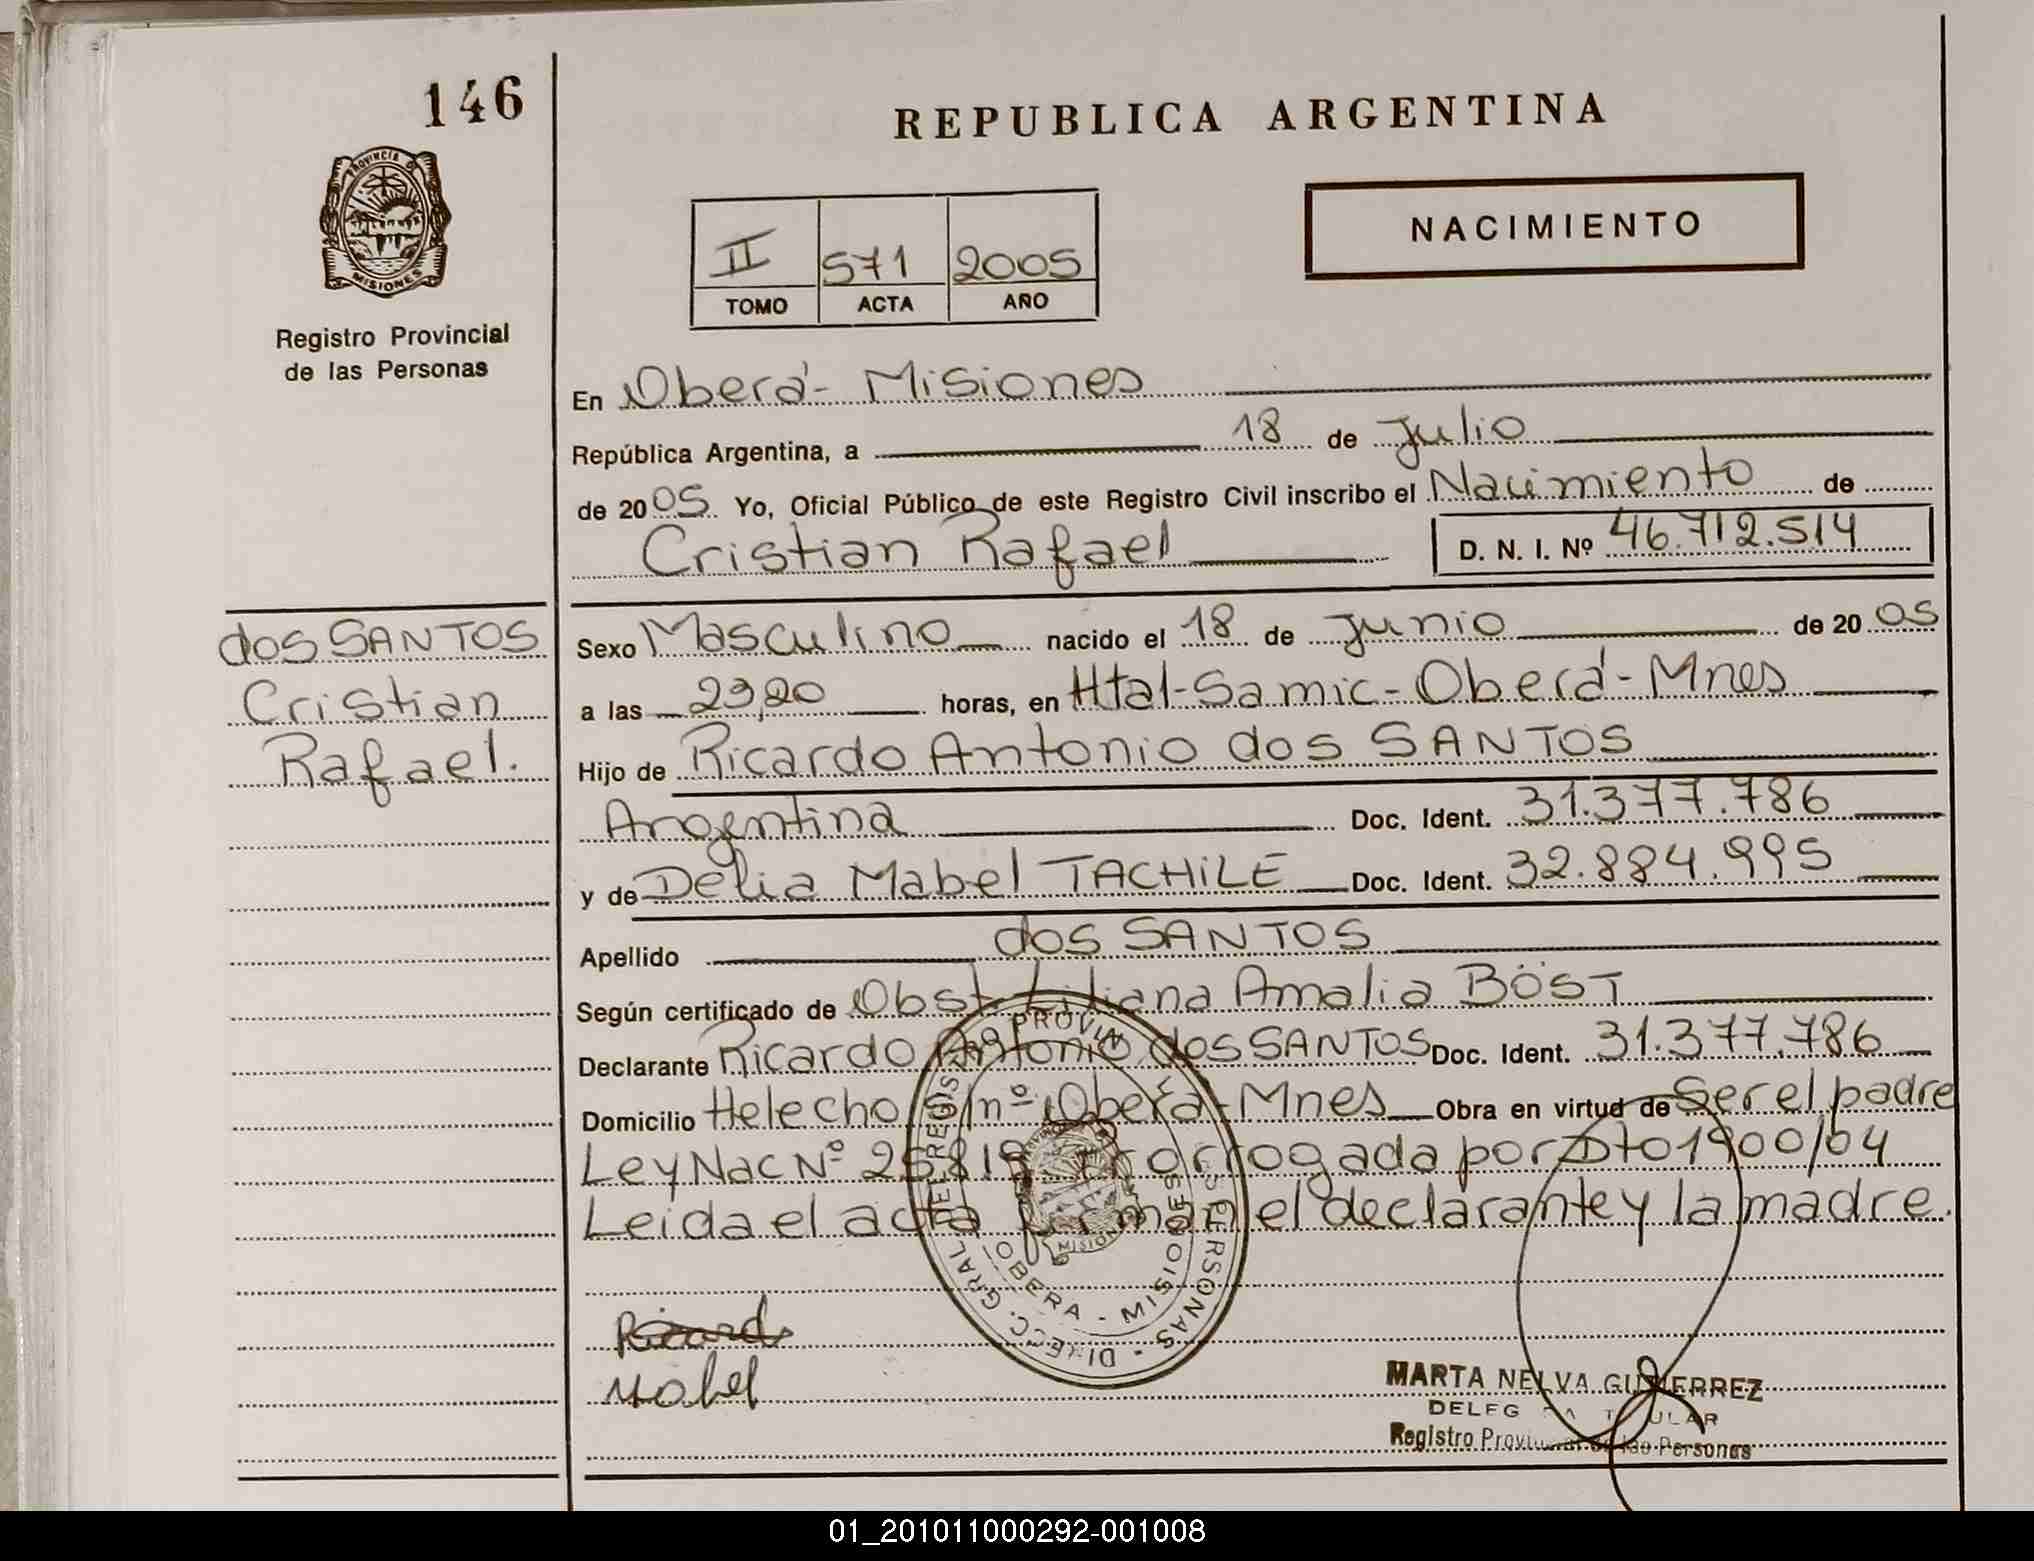 146
REPUBLICA ARGENTINA
PROVINCIA DE
MISIONES
Registro Provincial
de las Personas
NACIMIENTO
II 571 2005
TOMO ACTA AÑO
En Oberá - Misiones
República Argentina, a 18 de Julio
de 2005 Yo, Oficial Público de este Registro Civil inscribo el Nacimiento de
Cristian Rafael D. N. I. Nº 46.712.514
dos SANTOS
Cristian
Rafael.
Sexo Masculino nacido el 18 de Junio de 2005
a las 23,20 horas, en Htal-Samic-Oberá-Mnes
Hijo de Ricardo Antonio dos SANTOS
Argentina Doc. Ident. 31.377.786
y de Delia Mabel TACHiLE Doc. Ident. 32.884.995
Apellido dos SANTOS
Según certificado de Obst. Liliana Amalia BÖST
Declarante Ricardo Antonio dos SANTOS Doc. Ident. 31.377.786
Domicilio Helecho s/nº Oberá-Mnes Obra en virtud de Ser el padre
Ley Nac Nº 25.819 Prorrogada por Dto 1900/04
Leida el acta firman el declarante y la madre.
DIRECC. GRAL DE REGIS PROVIN PERSONAS
OBERA - MISIONES
Ricardo
Mabel
MARTA NELVA GUTIERREZ
DELEGADA TITULAR
Registro Provincial de las Personas
01_201011000292-001008